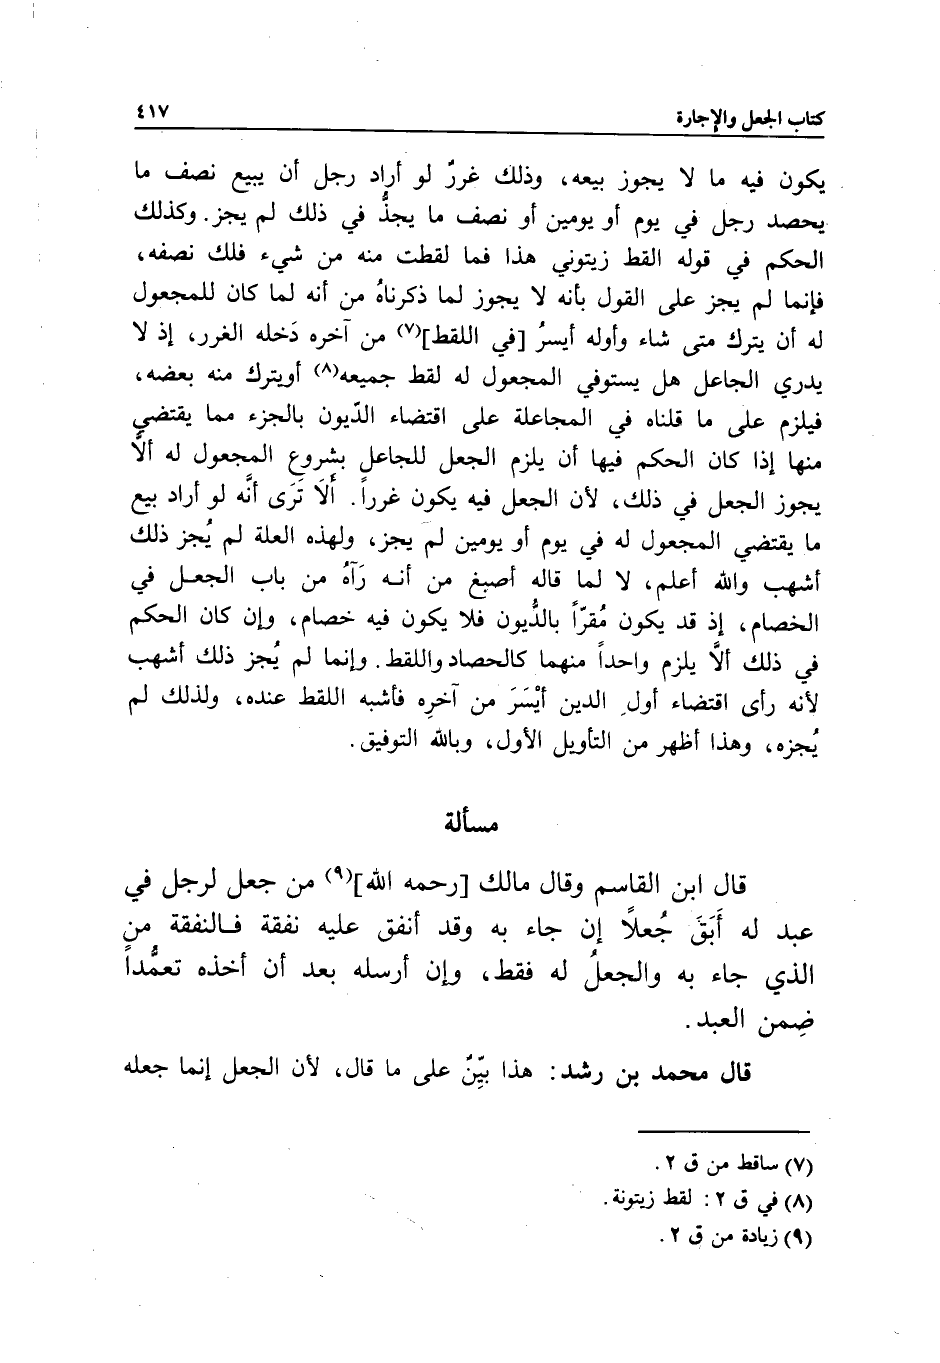 كتاب الجعل والإجارة ٤١٧
يكون فيه ما لا يجوز بيعه، وذلك غررٌ لو أراد رجل أن يبيع نصف ما
يحصد رجل في يوم أو يومين أو نصف ما يجذُّ في ذلك لم يجز. وكذلك
الحكم في قوله القط زيتوني هذا فما لقطت منه من شيء فلك نصفه،
فإنما لم يجز على القول بأنه لا يجوز لما ذكرناهُ من أنه لما كان للمجعول
له أن يترك متى شاء وأوله أيسرُ [في اللقط](٧) من آخره دَخله الغرر، إذ لا
يدري الجاعل هل يستوفي المجعول له لقط جميعه(٨) أويترك منه بعضه،
فيلزم على ما قلناه في المجاعلة على اقتضاء الدّيون بالجزء مما يقتضي
منها إذا كان الحكم فيها أن يلزم الجعل للجاعل بشروع المجعول له ألَّا
يجوز الجعل في ذلك، لأن الجعل فيه يكون غرراً. أَلَا تَرَى أنَّه لو أراد بيع
ما يقتضي المجعول له في يوم أو يومين لم يجز، ولهذه العلة لم يُجز ذلك
أشهب والله أعلم، لا لما قاله أصبغ من أنه رَآهُ من باب الجعل في
الخصام، إذ قد يكون مُقرّاً بالدُّيون فلا يكون فيه خصام، وإن كان الحكم
في ذلك ألَّا يلزم واحداً منهما كالحصاد واللقط. وإنما لم يُجز ذلك أشهب
لأنه رأى اقتضاء أولِ الدين أيْسَرَ من آخرِه فأشبه اللقط عنده، ولذلك لم
يُجزه، وهذا أظهر من التأويل الأول، وبالله التوفيق.
مسألة
قال ابن القاسم وقال مالك [رحمه الله](٩) من جعل لرجل في
عبد له أَبَقَ جُعلاً إن جاء به وقد أنفق عليه نفقة فالنفقة من
الذي جاء به والجعلُ له فقط، وإن أرسله بعد أن أخذه تعمُّداً
ضِمن العبد.
قال محمد بن رشد: هذا بيّنٌ على ما قال، لأن الجعل إنما جعله
(٧) ساقط من ق ٢.
(٨) في ق ٢: لقط زيتونة.
(٩) زيادة من ق ٢.